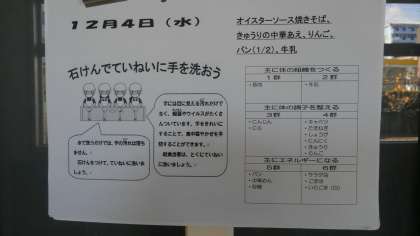 12月4日（水）
オイスターソース焼きそば、
きゅうりの中華あえ、りんご、
パン（1/2）、牛乳
石けんでていねいに手を洗おう
手には目に見える汚れだけで
なく、細菌やウイルスがたくさ
んついています。手をきれいに
することで、食中毒やかぜを予
防することができます。
給食当番は、とくにていねい
に洗いましょう。
水で洗うだけでは、手の汚れは落ち
ません。
石けんをつけて、ていねいに洗いま
しょう。
主に体の組織をつくる
1群 2群
・豚肉 ・牛乳
主に体の調子を整える
3群 4群
・にんじん ・キャベツ
・にら ・たまねぎ
・しょうが
・にんにく
・きゅうり
・りんご
主にエネルギーになる
5群 6群
・パン ・サラダ油
・中華めん ・ごま油
・砂糖 ・いりごま（白）